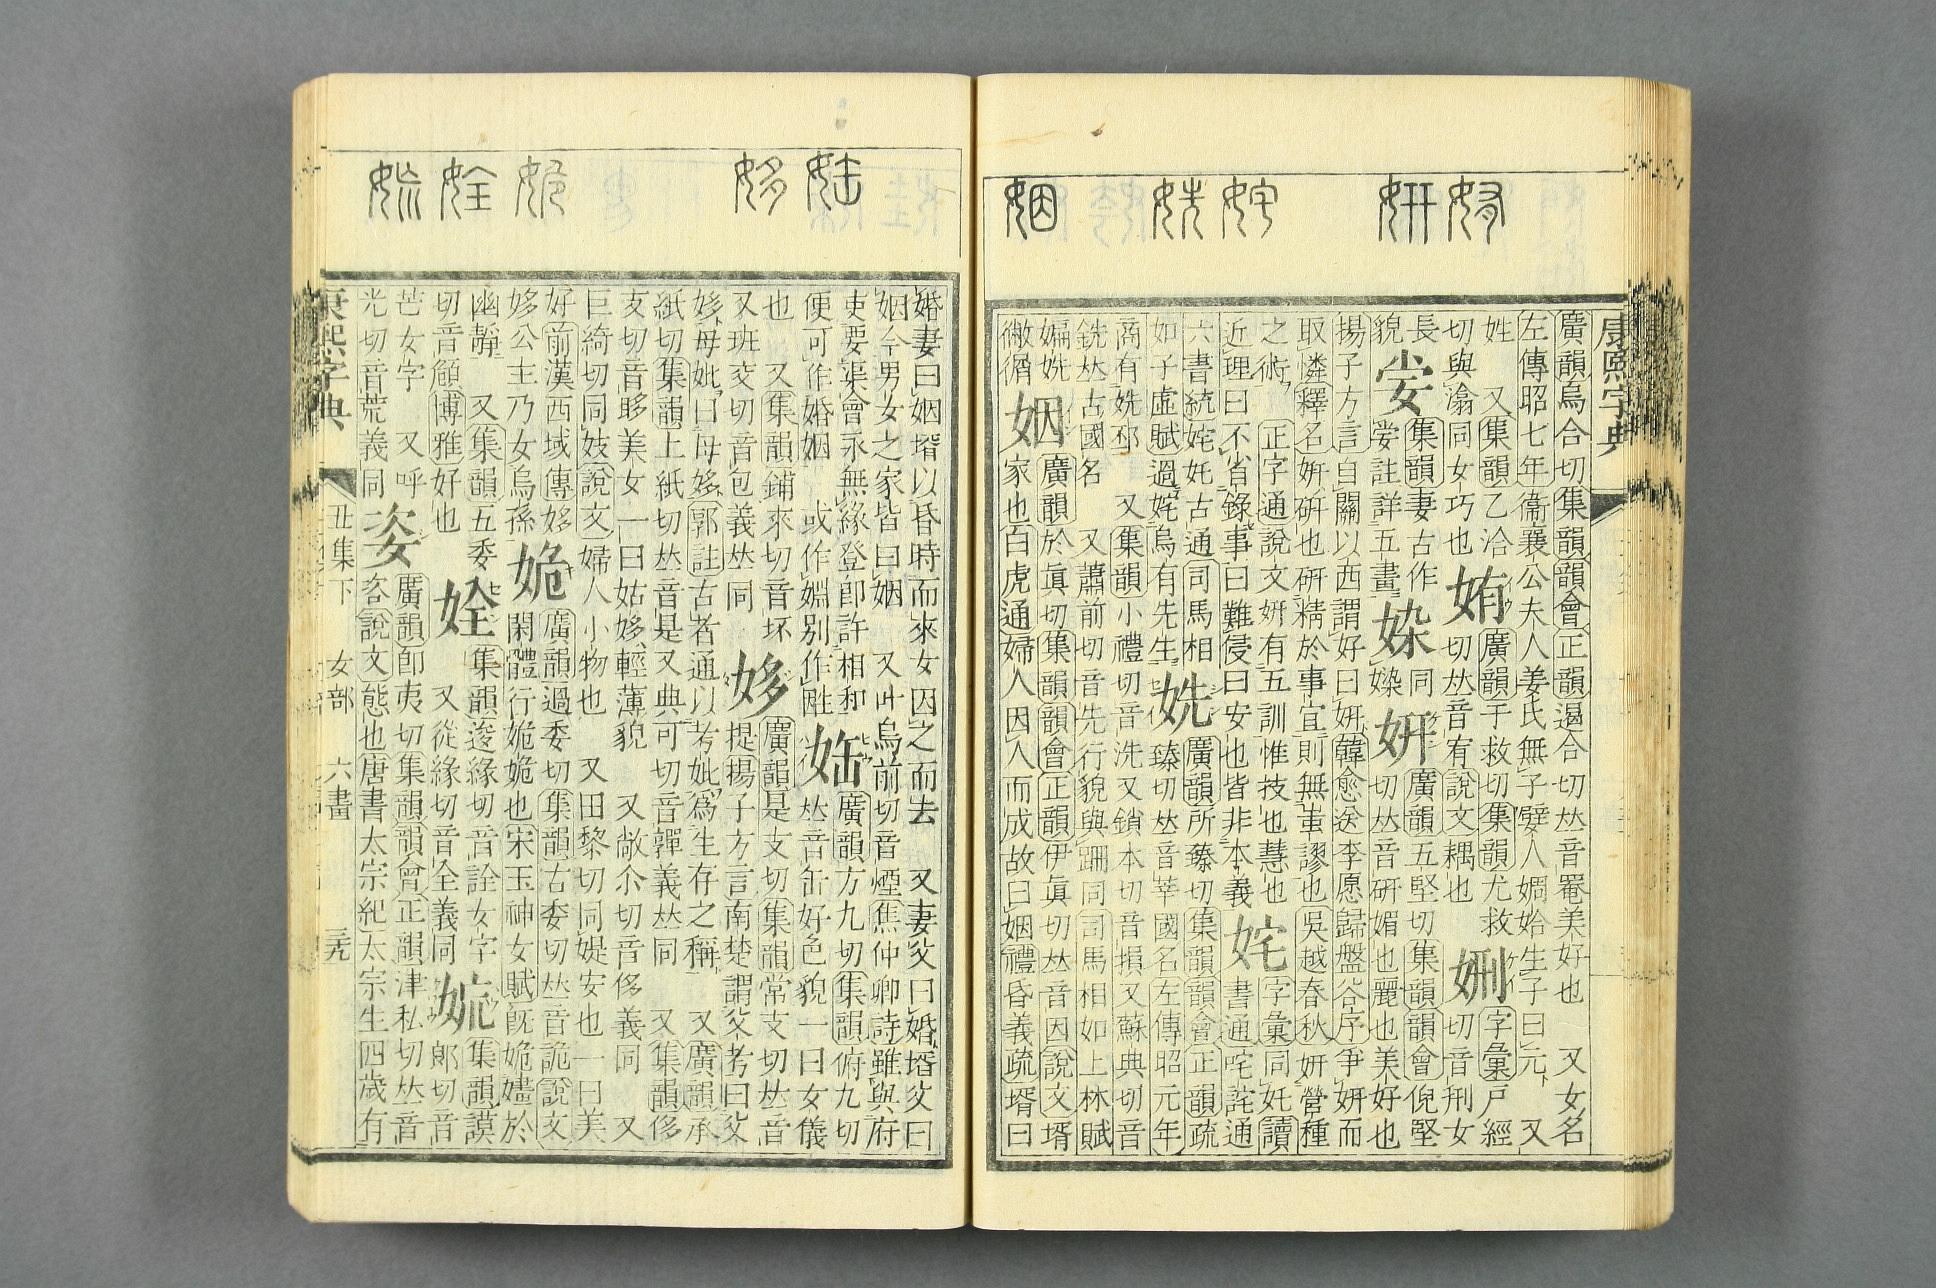 康熙字典
廣韻烏合切集韻韻會正韻遏合切𠀤音罨美好也 又女名
左傳昭七年衞襄公夫人姜氏無子嬖人婤姶生子曰元 又
姓 又集韻乙洽
切與㴔同女巧也
姷 廣韻于救切集韻尤救
切𠀤音宥說文耦也
㛙 字彙戸經
切音刑女
長
貌
集韻妻古作
註詳五畫
同
姸 廣韻五堅切集韻韻會倪堅
切𠀤音硏媚也麗也美好也
揚子方言自關以西謂好曰姸韓愈送李愿歸盤谷序爭姸而
取憐釋名姸硏也硏精於事宜則無蚩謬也吳越春秋姸營種
之術 正字通說文姸有五訓惟技也慧也
近理曰不省錄事曰難侵曰安也皆非本義
姹 字彙同奼讀
書通咤詫通
六書統姹奼古通司馬相
如子虛賦過姹烏有先生
姺 廣韻所臻切集韻韻會正韻疏
臻切𠀤音莘國名左傳昭元年
商有姺邳 又集韻小禮切音洗又鎖本切音損又蘇典切音
銑𠀤古國名 又蕭前切音先行貌與跚同司馬相如上林賦
媥姺
徶㣯
姻 廣韻於眞切集韻韻會正韻伊眞切𠀤音因說文壻
家也白虎通婦人因人而成故曰姻禮昏義疏壻曰
婚妻曰姻壻以昏時而來女因之而去 又妻父曰婚壻父曰
姻今男女之家皆曰姻 又叶烏前切音煙焦仲卿詩雖與府
吏要渠會永無緣登卽許相和
便可作婚姻 或作婣別作
廣韻方九切集韻俯九切
𠀤音缶好色貌一曰女儀
也 又集韻鋪來切音坏
又班交切音包義𠀤同
姼 廣韻是支切集韻常支切𠀤音
提揚子方言南楚謂父考曰父
姼母妣曰母姼郭註古者通以考妣爲生存之稱 又廣韻承
紙切集韻上紙切𠀤音是又典可切音嚲義𠀤同 又集韻侈
支切音眵美女一曰姑姼輕薄貌 又敞尒切音侈義同 又
巨綺切同妓說文婦人小物也 又田黎切同媞安也一曰美
好前漢西域傳姼
姼公主乃女烏孫
姽 廣韻過委切集韻古委切𠀤音詭說文
閑體行姽姽也宋玉神女賦旣姽嫿於
幽靜 又集韻五委
切音頠博雅好也
姾 集韻逡緣切音詮女字
又從緣切音全義同
集韻謨
郞切音
芒女字 又呼
光切音荒義同
姿 廣韻卽夷切集韻韻會正韻津私切𠀤音
咨說文態也唐書太宗紀太宗生四歲有
康熙字典 丑集下 女部 六畫